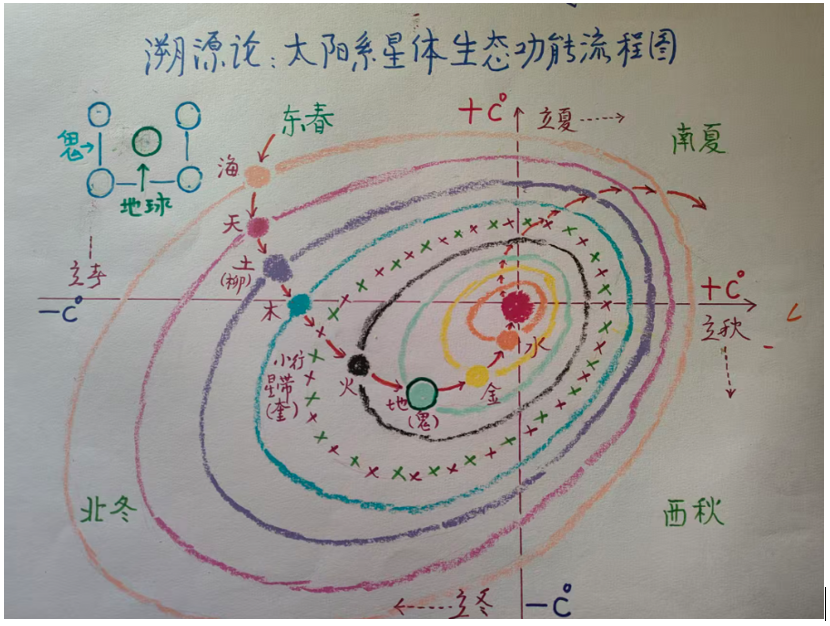 溯源论:太阳系星体生态功能流程图
东春
+C°
立夏
南夏
鬼
海
地球
天
立春
土
(柳)
-C°
木
+C°
立秋
水
小行
星带
(奎)
火
地
(鬼)
金
北冬
西秋
立冬
-C°